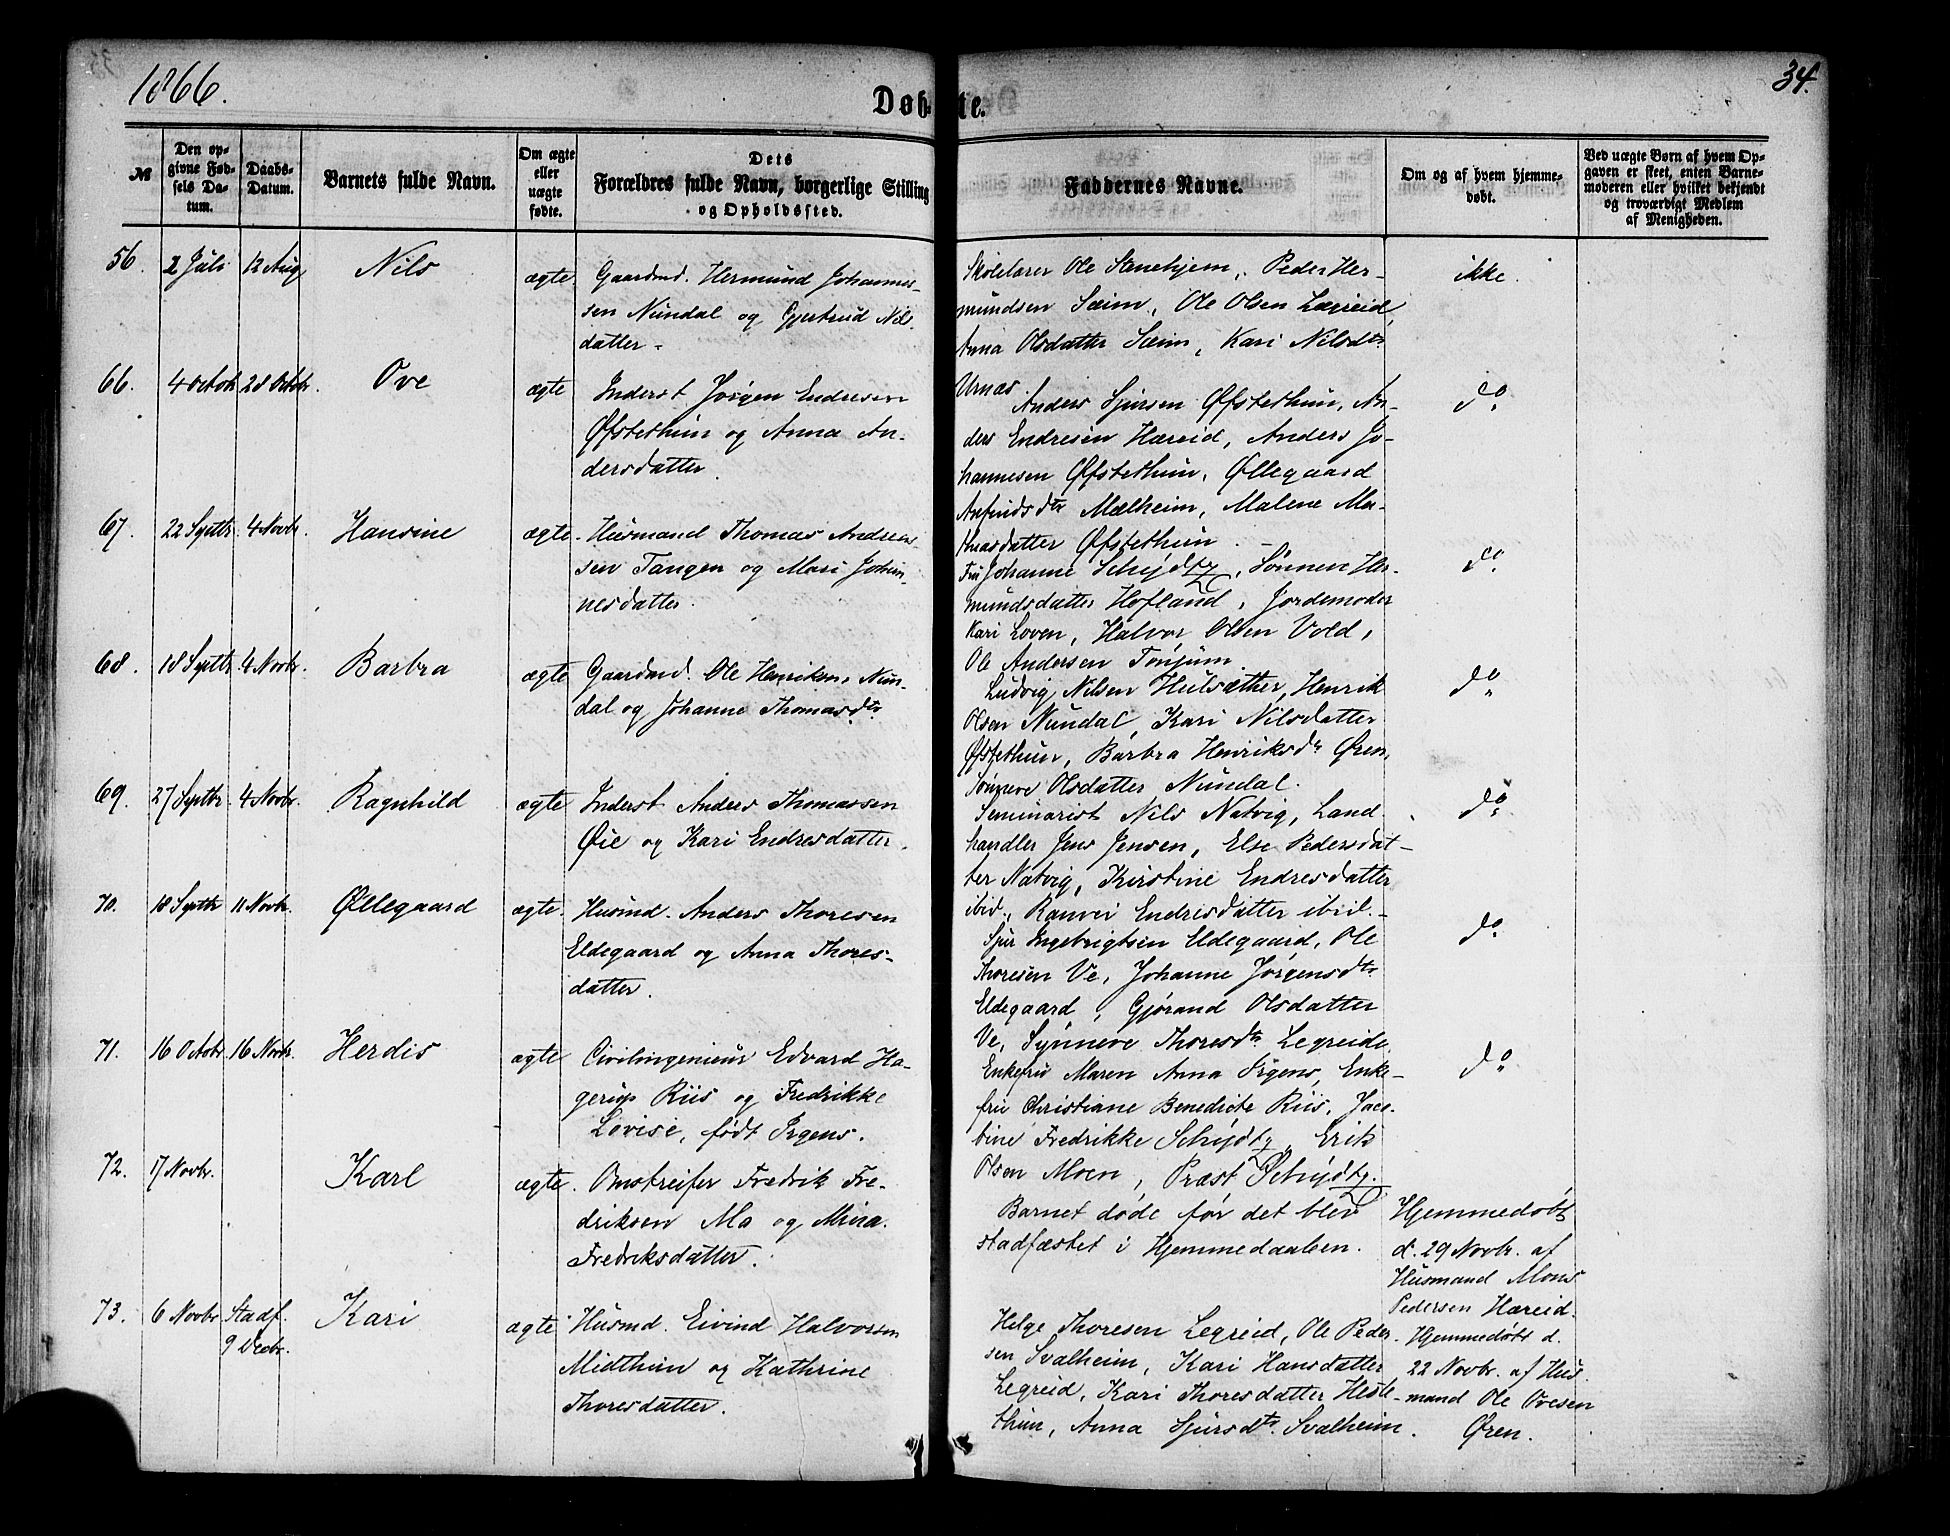 1866.
34.
Døbte.
№
Den opgivne Fødsels Datum.
Daabs-Datum.
Barnets fulde Navn.
Om ægte eller uægte fødte.
Dets Forældres fulde Navn, borgerlige Stilling og Opholdssted.
Faddernes Navne.
Om og af hvem hjemmedøbt.
Ved uægte Børn af hvem Opgaven er skeet, enten Barnemoderen eller hvilket bekjendt og troværdigt Medlem af Menigheden.
56. 2 Juli 12 Aug Nils ægte.
Gaardmd. Hermund Johannes-
sen Nundal og Gjertrud Nils
datter.
Skolelærer Ole Stenehjem, Peder Her-
mundsen Sæim, Ole Olsen Lægreid,
Anna Olsdatter Sæim, Kari Nilsdtr
Urnæs
ikke.
66. 4 Octob. 28 Octbr. Ove ægte
Inderst Jørgen Endresen
Øfstethun og Anna An-
dersdatter.
Anders Sjursen Øfstethun, An-
ders Endresen Hæreid, Anders Jo-
hannesen Øfstethun, Øllegaard
Anfindsdtr Mælheim, Malene Ma-
thiasdatter Øfstethun.
do.
67. 22 Septbr. 4 Novbr. Hansine ægte.
Husmand Thomas Andrea-
sen Tangen og Mari Johan-
nesdatter.
Fru Johanne Schydtz, Sønnev Her-
mundsdatter Hofland, Jordemoder
Kari Loven, Halvor Olsen Vold,
Ole Andersen Tønjum.
do.
68. 18 Septbr. 4 Novbr. Barbra ægte
Gaardmd. Ole Henriksen Nun-
dal og Johanne Thomasdtr
Ludvig Nilsen Hulsæther, Henrik
Olsen Nundal, Kari Nilsdatter
Øfstethun, Barbra Henriksdr Øren,
Sønneve Olsdatter Nundal.
do.
69. 27 Septbr. 4 Novbr. Ragnhild ægte
Inderst Anders Thomassen
Øie og Kari Endresdatter.
Seminarist Nils Natvig, Land
handler Jens Jensen, Else Pedersdat-
ter Natvig, Kirstine Endresdatter
ibid., Ranvei Endrisdatter ibid.
do.
70. 18 Septbr 11 Novbr. Øllegaard ægte.
Husmd. Anders Thoresen
Eldegaard og Anna Thores-
datter.
Sjur Ingebrigtsen Eldegaard, Ole
Thoresen Ve, Johanne Jørgensdtr
Eldegaard, Gjørand Olsdatter
Ve, Synneve Thoresdtr Legreide.
do.
71. 16 Octbr. 16 Novbr. Herdis ægte
Civilingenieur Edvard Ha-
gerup Riis og Fredrikke
Lovise, født Irgens.
Enkefru Maren Anna Irgens, Enke-
fru Christiane Benedicte Riis, Jaco-
bine Fredrikke Schydtz, Erik
Olsen Moen, Præst Schydtz.
do.
72. 17 Novbr. Karl ægte.
Omstreifer Fredrik Fre-
driksen Mo og Mina
Fredriksdatter.
Barnet døde før det blev
stadfæstet i Hjemmedaaben.
Hjemmedøbt
d. 29 Novbr. af
Husmand Mons
Pedersen Hæreid.
73. 6 Novbr Stadf. 9 Decbr. Kari ægte
Husmd. Eivind Halvorsen
Midthun og Kathrine
Thoresdatter.
Helge Thoresen Legreid, Ole Peder-
sen Svalheim, Kari Hansdatter
Legreid, Kari Thoresdatter Heste-
thun, Anna Sjursdtr. Svalheim.
Hjemmedøbt d.
22 Novbr. af Hus-
mand Ole Ovesen
Øren.